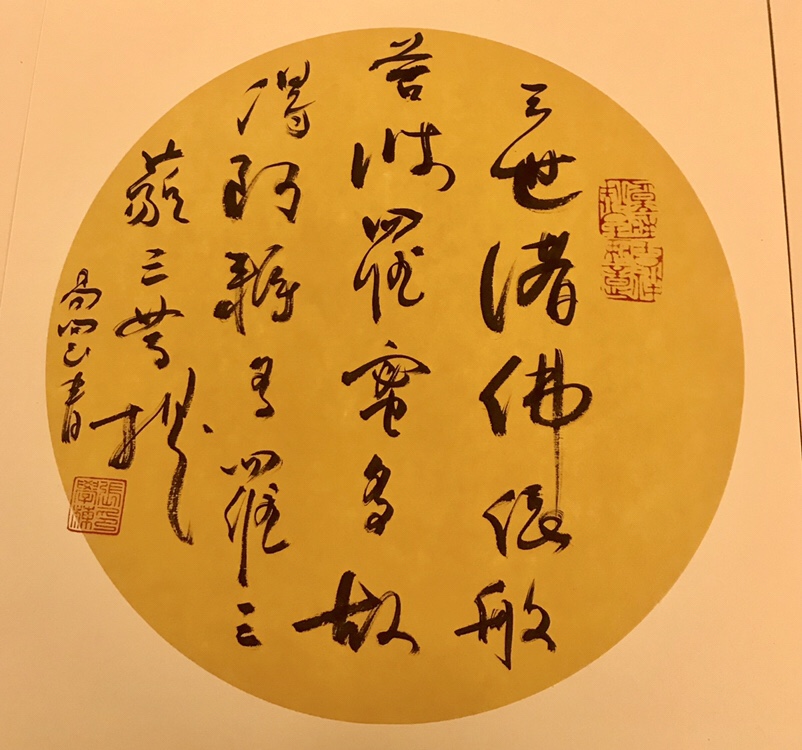 三世諸佛依般
若波羅蜜多故
得阿耨多羅三
藐三菩提